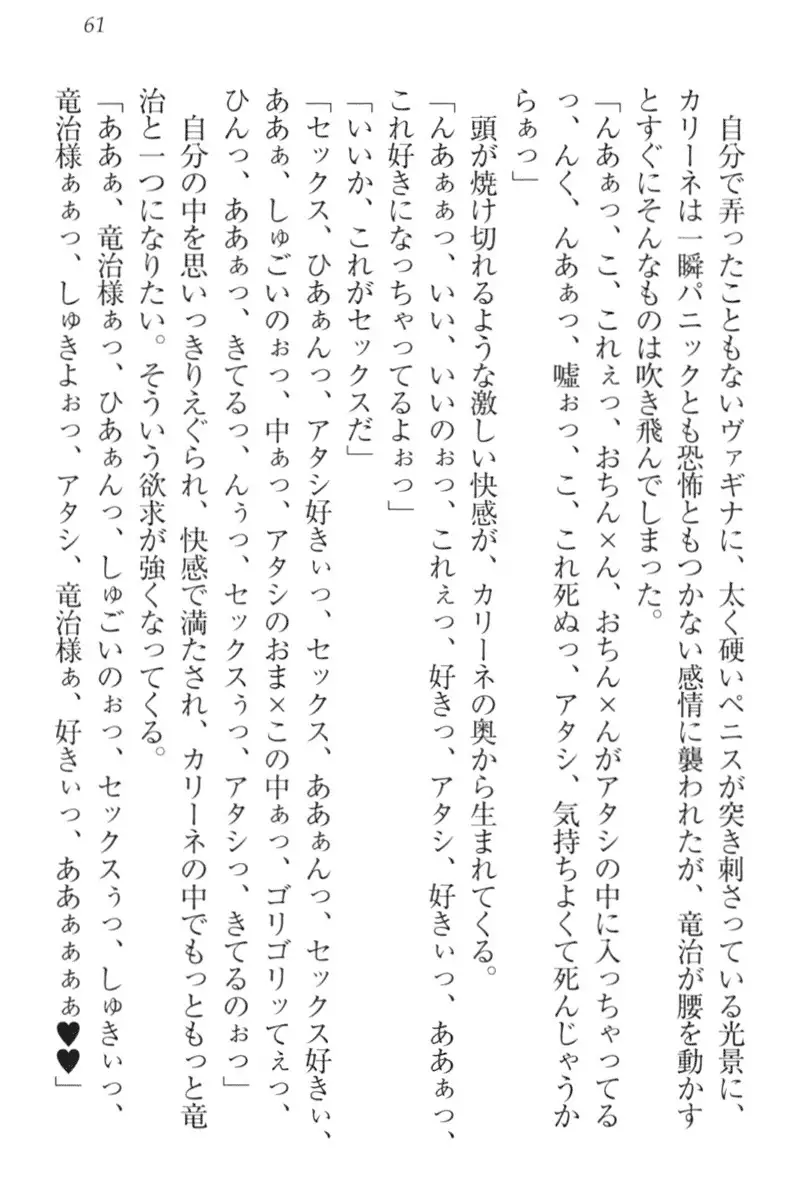 61
自分で弄ったこともないヴァギナに、太く硬いペニスが突き刺さっている光景に、
カリーネは一瞬パニックとも恐怖ともつかない感情に襲われたが、竜治が腰を動かす
とすぐにそんなものは吹き飛んでしまった。
「んあぁっ、こ、これぇっ、おちん×ん、おちん×んがアタシの中に入っちゃってる
っ、んく、んあぁっ、嘘ぉっ、こ、これ死ぬっ、アタシ、気持ちよくて死んじゃうか
らぁっ」
頭が焼け切れるような激しい快感が、カリーネの奥から生まれてくる。
「んあぁぁっ、いい、いいのぉっ、これぇっ、好きっ、アタシ、好きぃっ、ああぁっ、
これ好きになっちゃってるよぉっ」
「いいか、これがセックスだ」
「セックス、ひあぁんっ、アタシ好きぃっ、セックス、ああぁんっ、セックス好きぃ、
ああぁ、しゅごいのぉっ、中ぁっ、アタシのおま×この中ぁっ、ゴリゴリッてぇっ、
ひんっ、ああぁっ、きてるっ、んぅっ、セックスぅっ、アタシっ、きてるのぉっ」
自分の中を思いっきりえぐられ、快感で満たされ、カリーネの中でもっともっと竜
治と一つになりたい。そういう欲求が強くなってくる。
「ああぁ、竜治様ぁっ、ひあぁんっ、しゅごいのぉっ、セックスぅっ、しゅきぃっ、
竜治様ぁぁっ、しゅきよぉっ、アタシ、竜治様ぁ、好きぃっ、ああぁぁぁぁ♥♥」